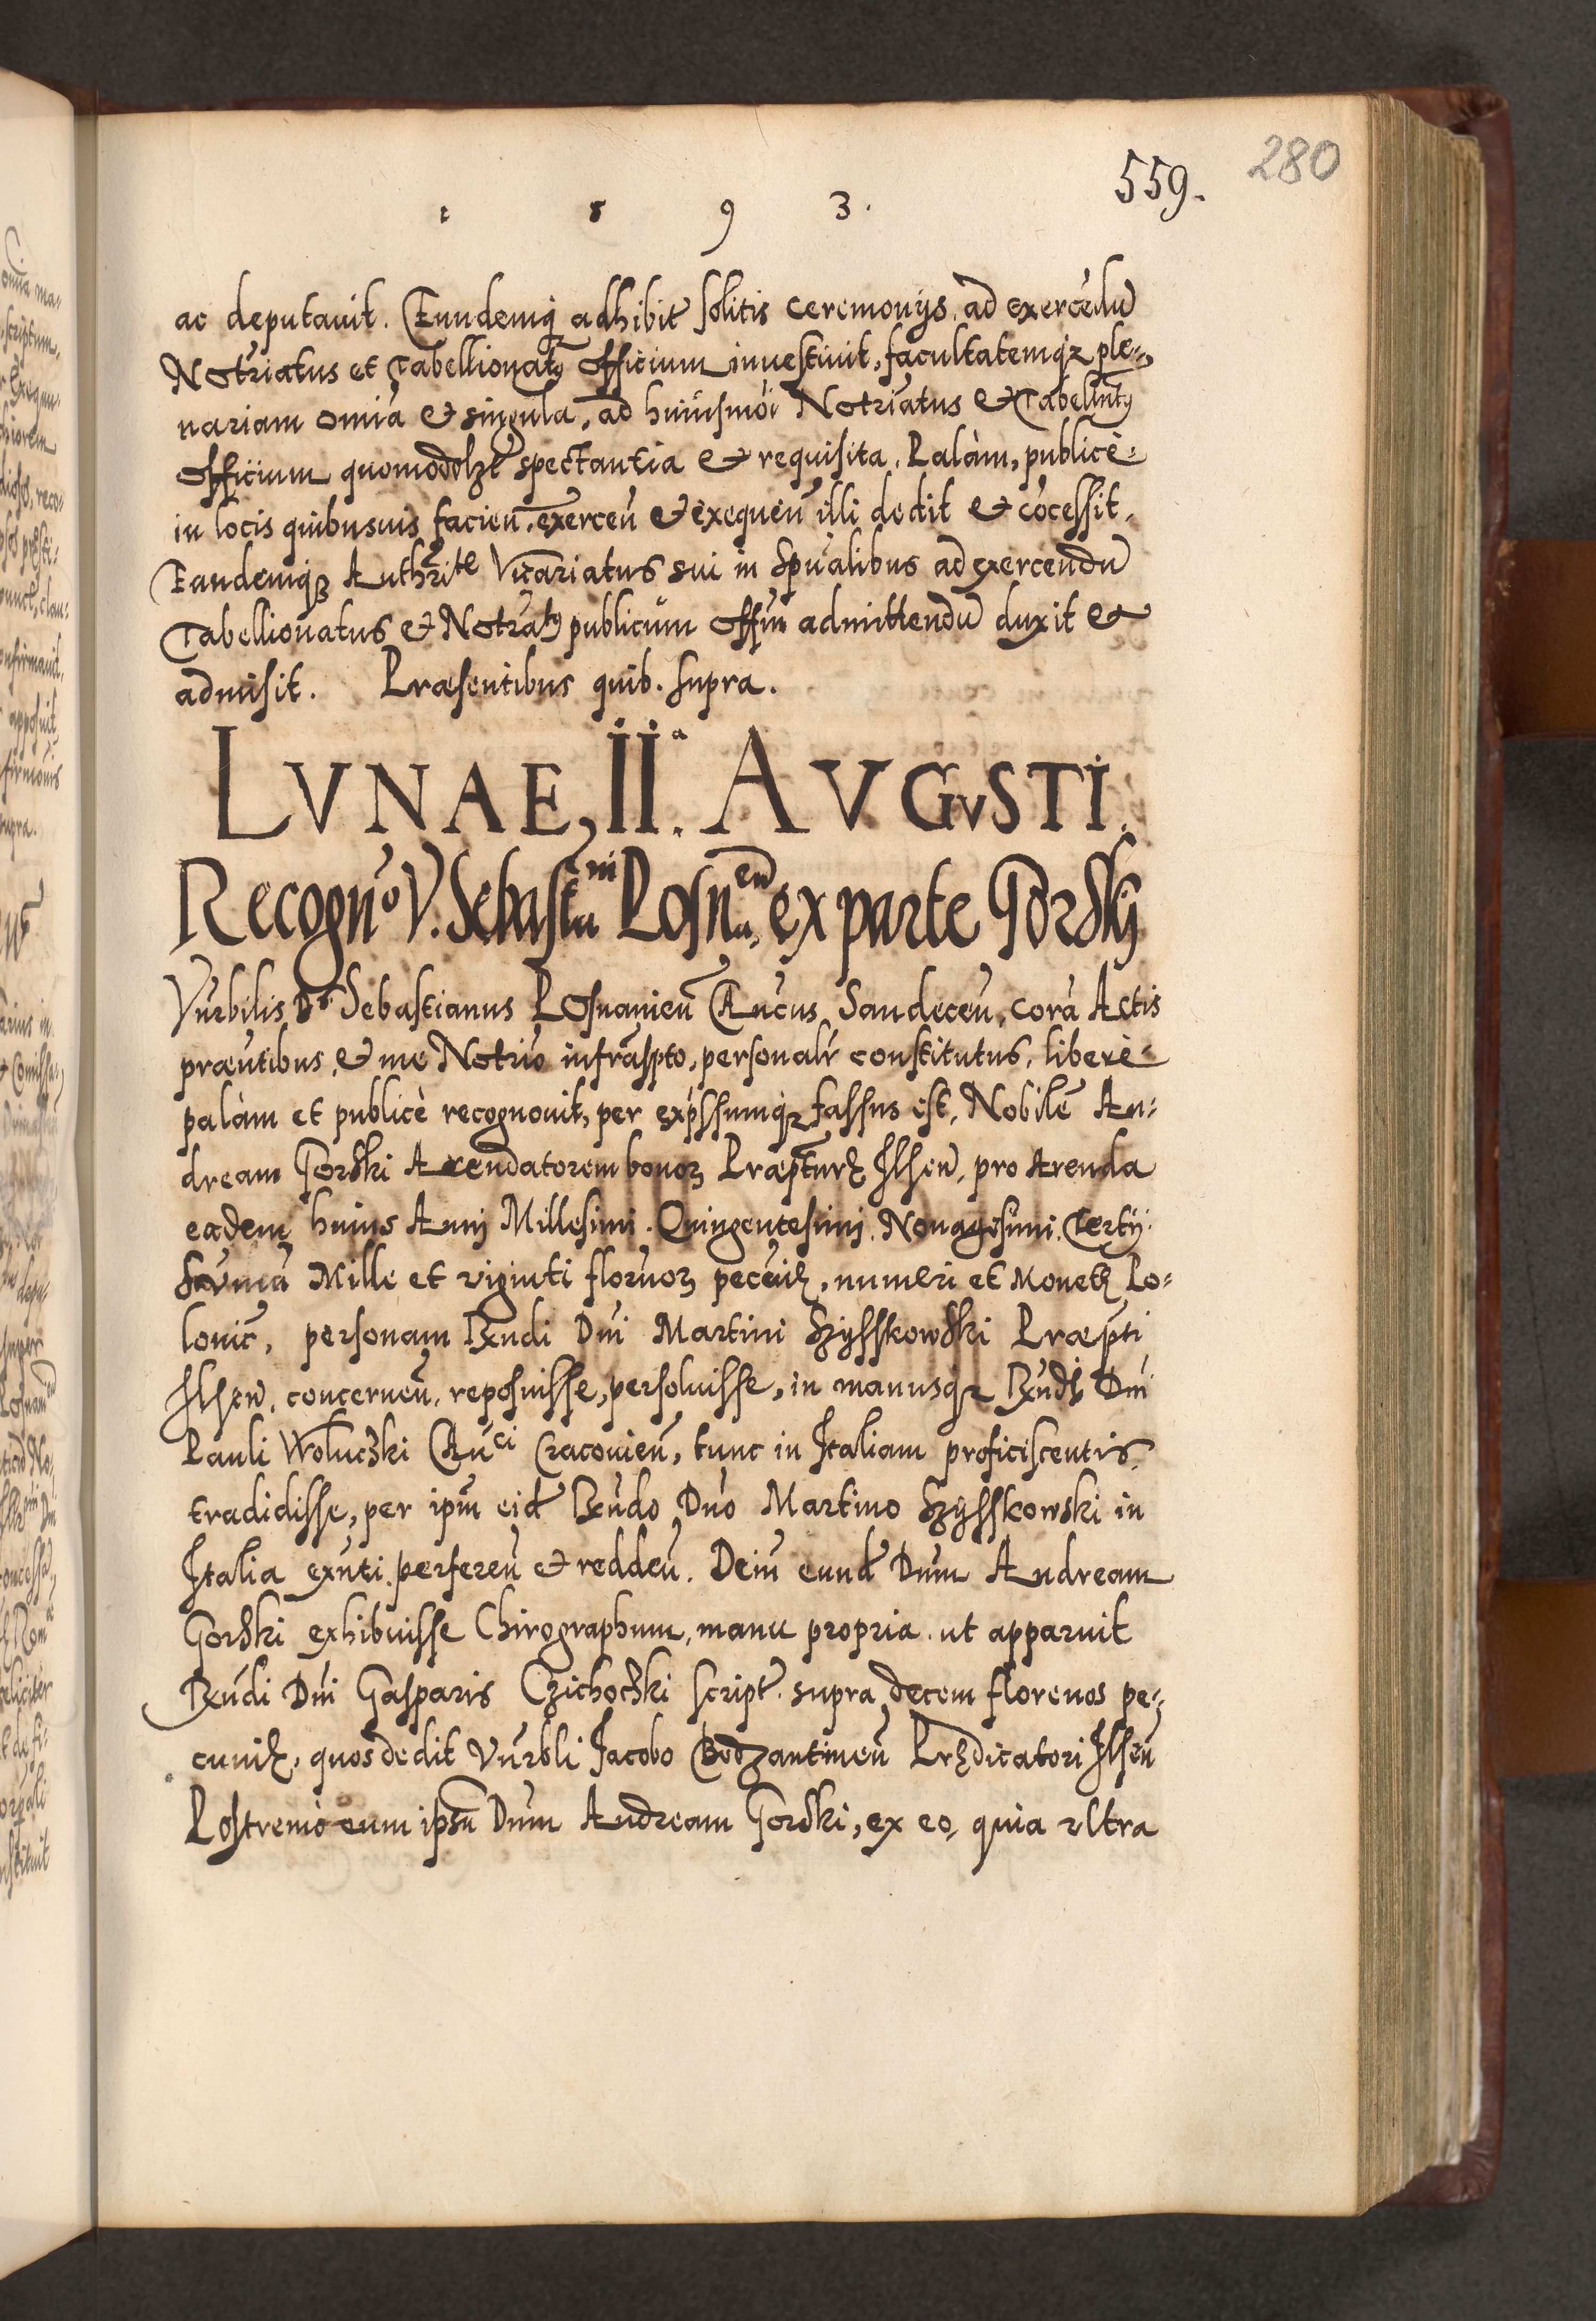 559.
280
1 5 9 3.
ac deputauit. Eundemq́ adhibit̃ solitis ceremonijs, ad exercẽdũ
Notr̃iatus et Tabellionatꝰ Officium inuestiuit, facultatemqꝫ ple-,
nariam om̃ia & singula, ad huiusmõi Notr̃iatus & Tabell̃ntꝰ
Officium quomodolzt̃ spectantia & requisita, Palàm, publicè.
in locis quibusuis facieñ, exerceñ & exequeñ illi dedit & cõcessit.
Eandemqꝫ Authr̃ite Vicariatus sui in Sp̃ualibus ad exercendũ
Tabellionatus & Notr̃atꝰ publicum offiũ admittendũ duxit &
admisit. Præsentibus quib. supra.
LVNAE, II.ª AVGVSTI.
Recogn͠o V. Sebastia͠ni Posn͠aen, ex parte Gorskÿ
Vñrbilis Dꝰ Sebastianus Posnanieñ Cañcus Sandeceñ, corã Actis
præñtibus, & me Notr̃io infrasp̃to, personalr̃ constitutus, liberè
palàm et publicè recognouit, per exp̃ssumqꝫ fassus est, Nobilẽ An-
dream Gorski Arendatorem bonoꝝ Præp̃turę Ilsen̄, pro Arenda
eadem huius Anni Millesimi. Quingentesimi. Nonagesimi. Tertij.
Sum̃ã Mille et viginti florẽnoꝝ pecũię, numeri et Monetę Po-
lonic̃, personam Rñdi Dñi Martini Szysskowski Præp̃ti
Ilsen̄, concerneñ, reposuisse, persoluisse, in manusqꝫ Rñdi Dñi
Pauli Woluczki Cañci Cracouieñ, tunc in Italiam proficiscentis,
tradidisse, per ip̃m eid̃ Rñdo Dño Martino Szysskowski in
Italia exñti, perfereñ & reddeñ. Deiñ eund̃ Dñum Andream
Gorski exhibuisse Chirographum, manu propria, ut apparuit
Rñdi Dñi Gasparis Czichoczki script̃. supra decem florenos pe-,
cunię, quos dedit Vñrbli Jacobo Bodzantineñ Prędicatori Ilseñ
Postremò eum ipsũ Dñum Andream Gorski, ex eo, quia vltra